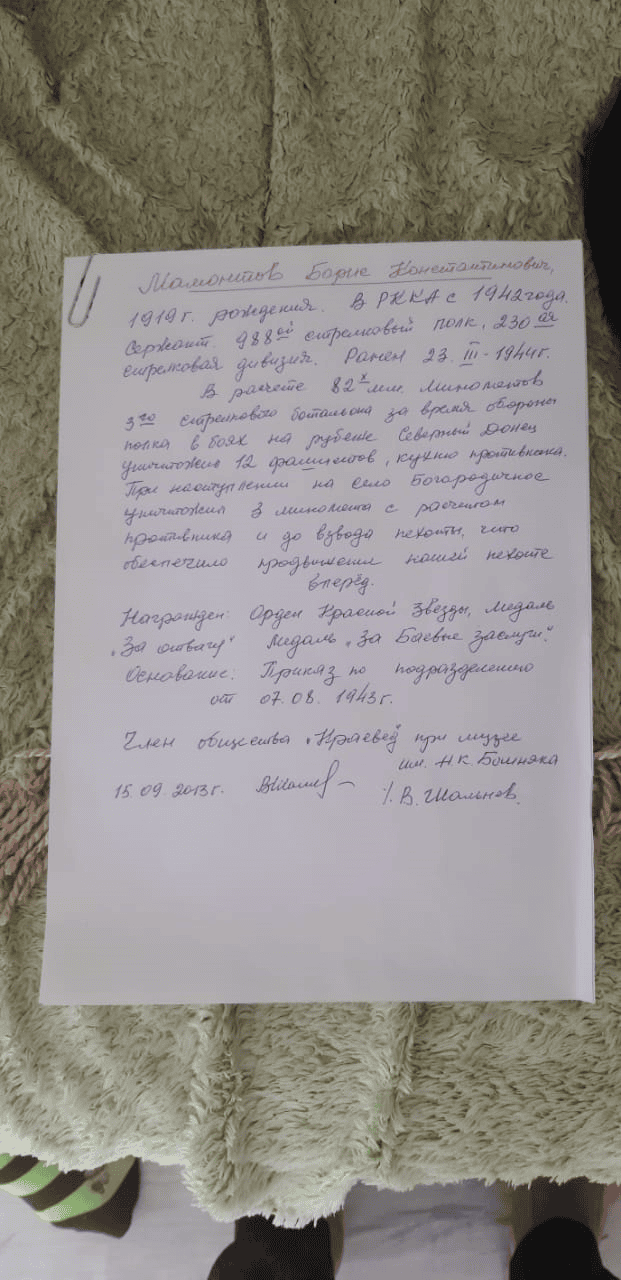 Мамонтов Борис Константинович,
1919 г. рождения. В РККА с 1942 года.
Сержант. 988ой стрелковый полк, 230ая
стрелковая дивизия. Ранен 23. III - 1944 г.
В расчете 82х мм. миномётов
3го стрелкового баталъона за время обороны
полка в боях на рубеже Северный Донец
уничтожил 12 фашистов, кухню противника.
При наступлении на село Богородичное
уничтожил 3 миномета с расчетом
противника и до взвода пехоты, что
обеспечило продвижения нашей пехоте
вперёд.
Награжден: Орден Красной Звезды, медаль
„За отвагу" медаль „За Баевые заслуги".
Основание: Приказ по подразделению
от 07.08. 1943 г.
Член общества „Краевед" при музее
им. Н.К. Бошняка
15.09.2013 г. /. В. Шальнев.